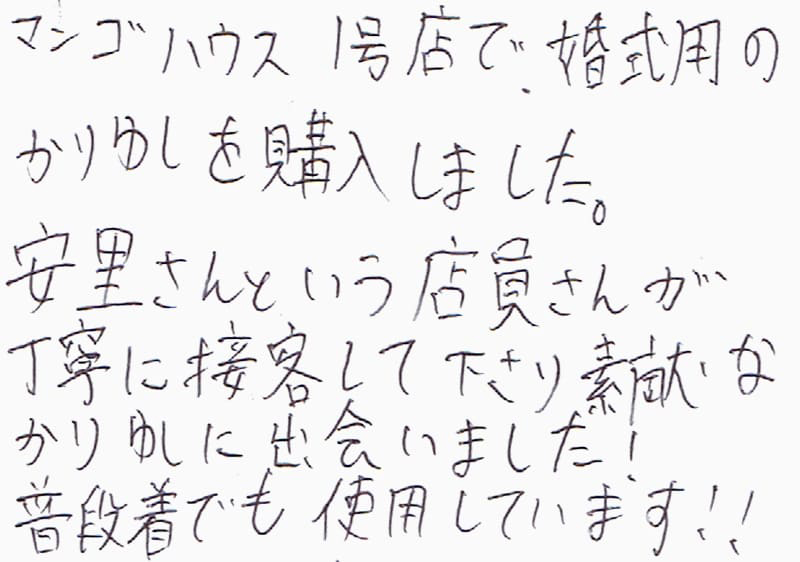 マンゴハウス 1号店で、婚式用の
かりゆしを購入しました。
安里さんという店員さんが
丁寧に接客して下さり素献な
かりゆしに出会いました!
普段着でも使用しています!!